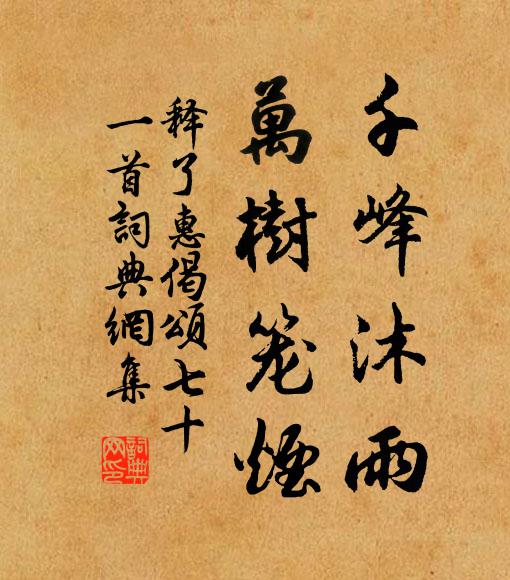 千峰沐雨
萬樹笼煙
释了惠偈頌七十
一首詞典網集
詞典
网印